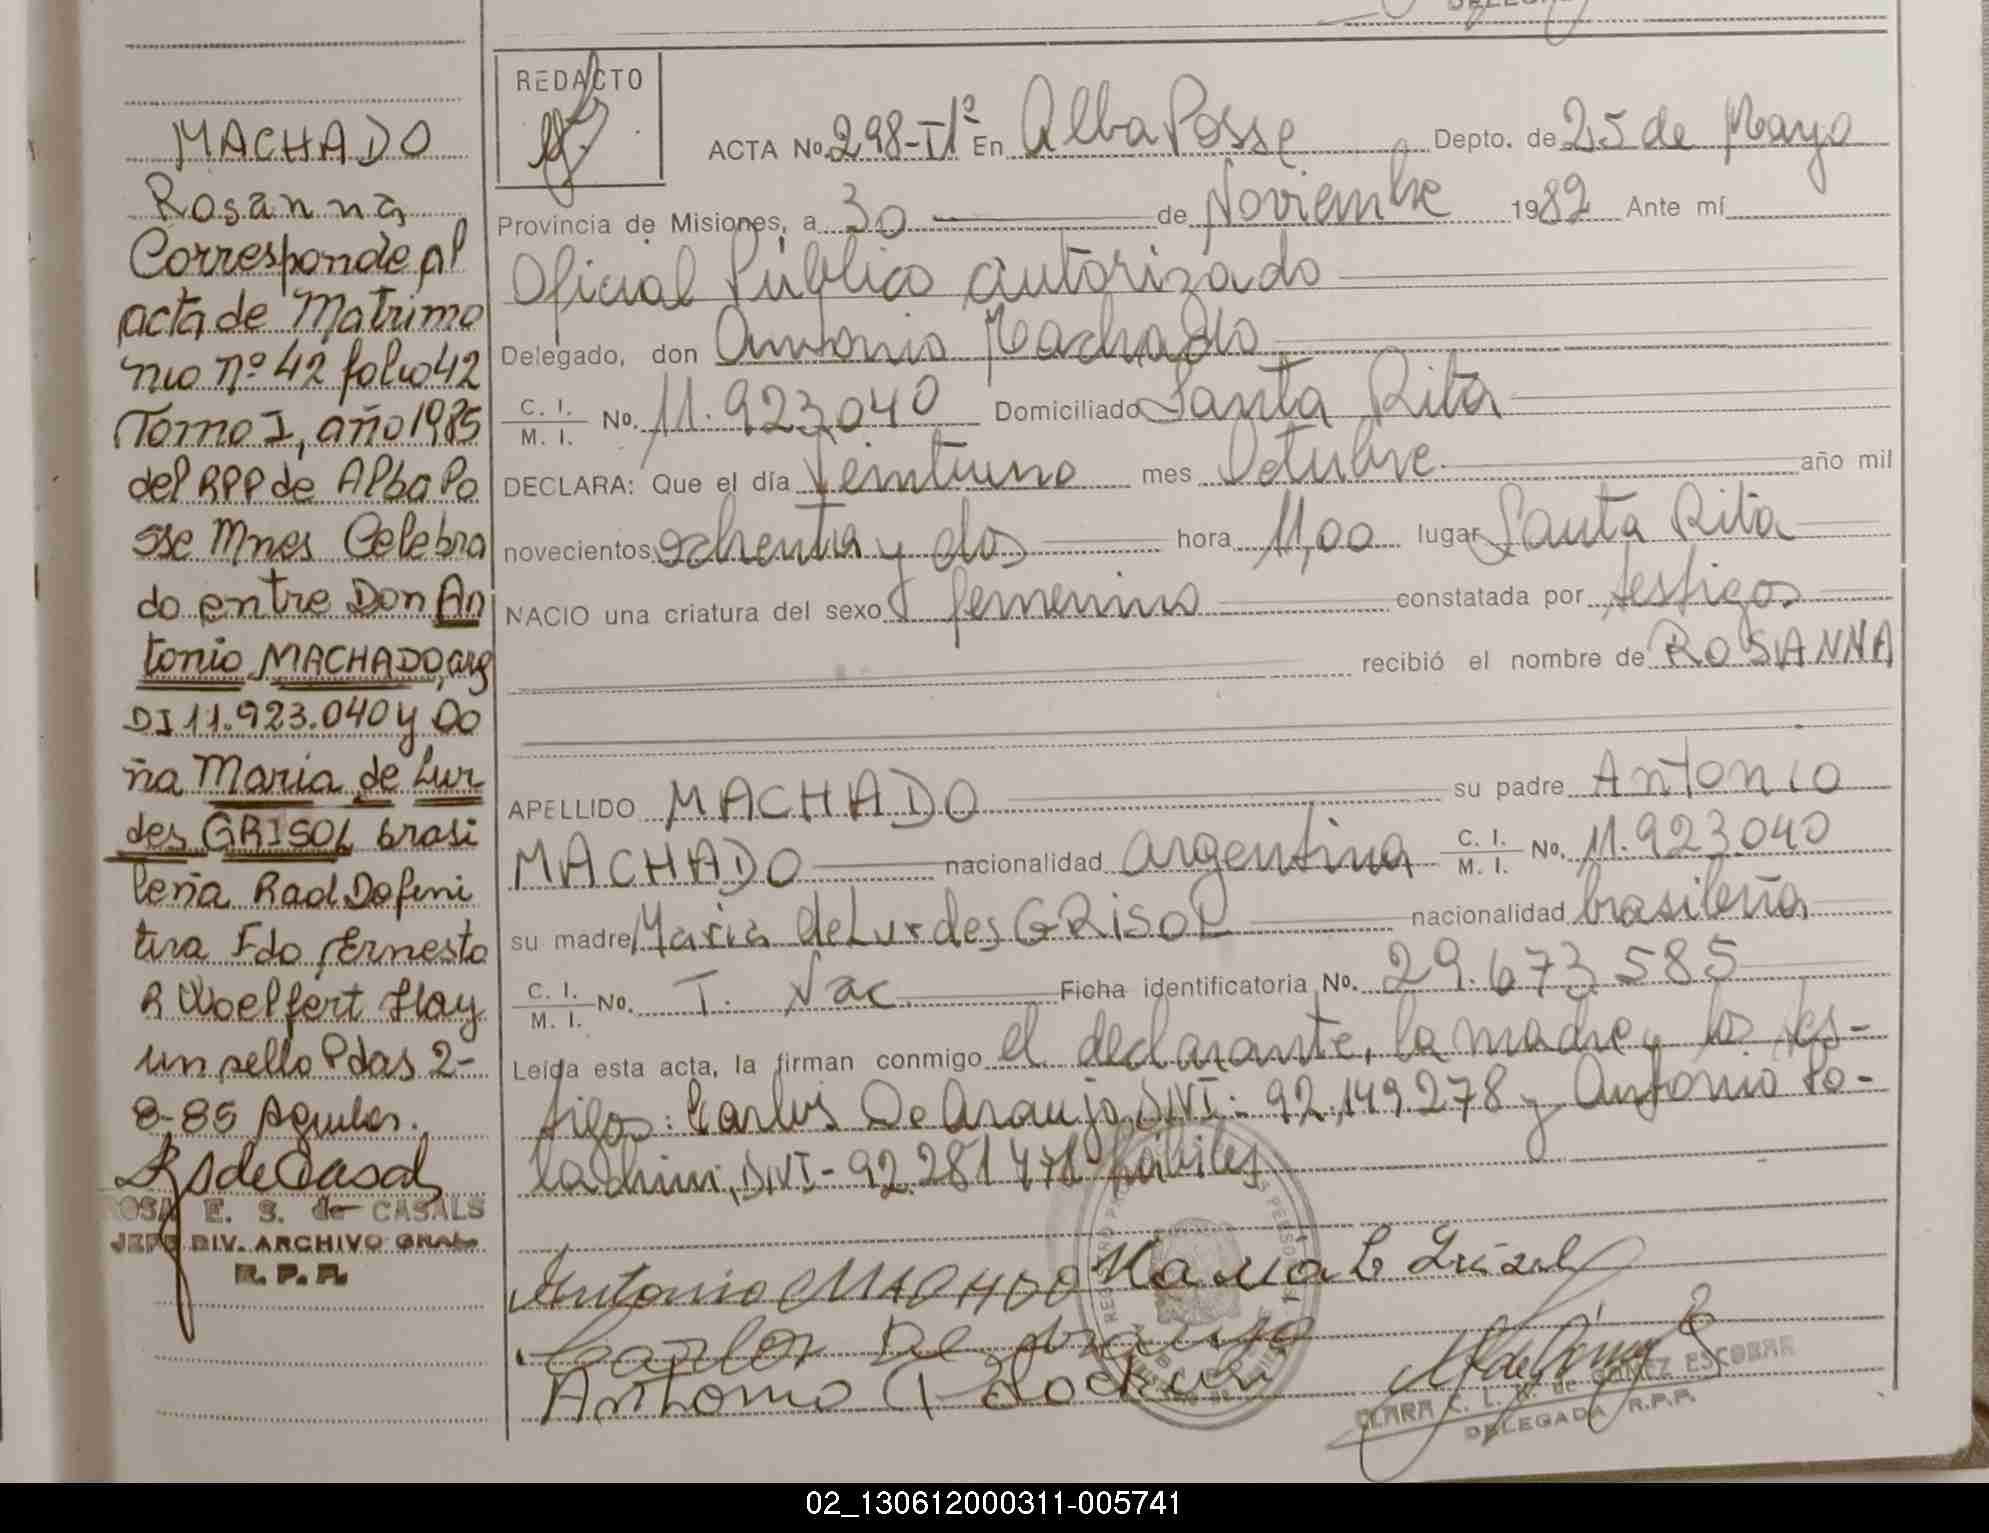 MACHADO
Rosanna
Corresponde al
acta de Matrimo
nio nº 42 folio 42
Tomo I, año 1985
del RPP de Alba Po
sse Mnes Celebra
do entre Don An
tonio MACHADO, arg
DI 11.923.040 y Do
ña Maria de Lur
des GRISOL brasi
leña Rad Defini
tiva Fdo Ernesto
R Woelfert Hay
un sello Pdas 2-
8-85
ROSA E. S. de CASALS
JEFE DIV. ARCHIVO GRAL.
R. P. P.
REDACTO
ACTA No. 298-II1ª En Alba Posse Depto. de 25 de Mayo
Provincia de Misiones, a 30 de Noviembre 1982 Ante mí
Oficial Público autorizado
Delegado, don Antonio Machado
C. I. / M. I. No. 11.923.040 Domiciliado Santa Rita
DECLARA: Que el día Veintiuno mes Octubre año mil
novecientos ochenta y dos hora 11,00 lugar Santa Rita
NACIO una criatura del sexo femenino constatada por testigos
recibió el nombre de ROSANNA
APELLIDO MACHADO su padre Antonio
MACHADO nacionalidad argentina C. I. / M. I. No. 11.923.040
su madre Maria de Lurdes GRISOL nacionalidad brasileña
C. I. / M. I. No. T. Nac Ficha identificatoria No. 29.673.585
Leída esta acta, la firman conmigo el declarante, la madre y los tes-
tigos: Carlos De Araujo, DNI- 92.149.278 y Antonio Po-
lachini, DNI- 92.281.471- hábiles
Antonio MACHADO Maria L Grizol
Carlos De Araujo
Antonio Polochini
CLARA C. L. N. de GOMEZ ESCOBAR
DELEGADA R.P.P.
02_130612000311-005741